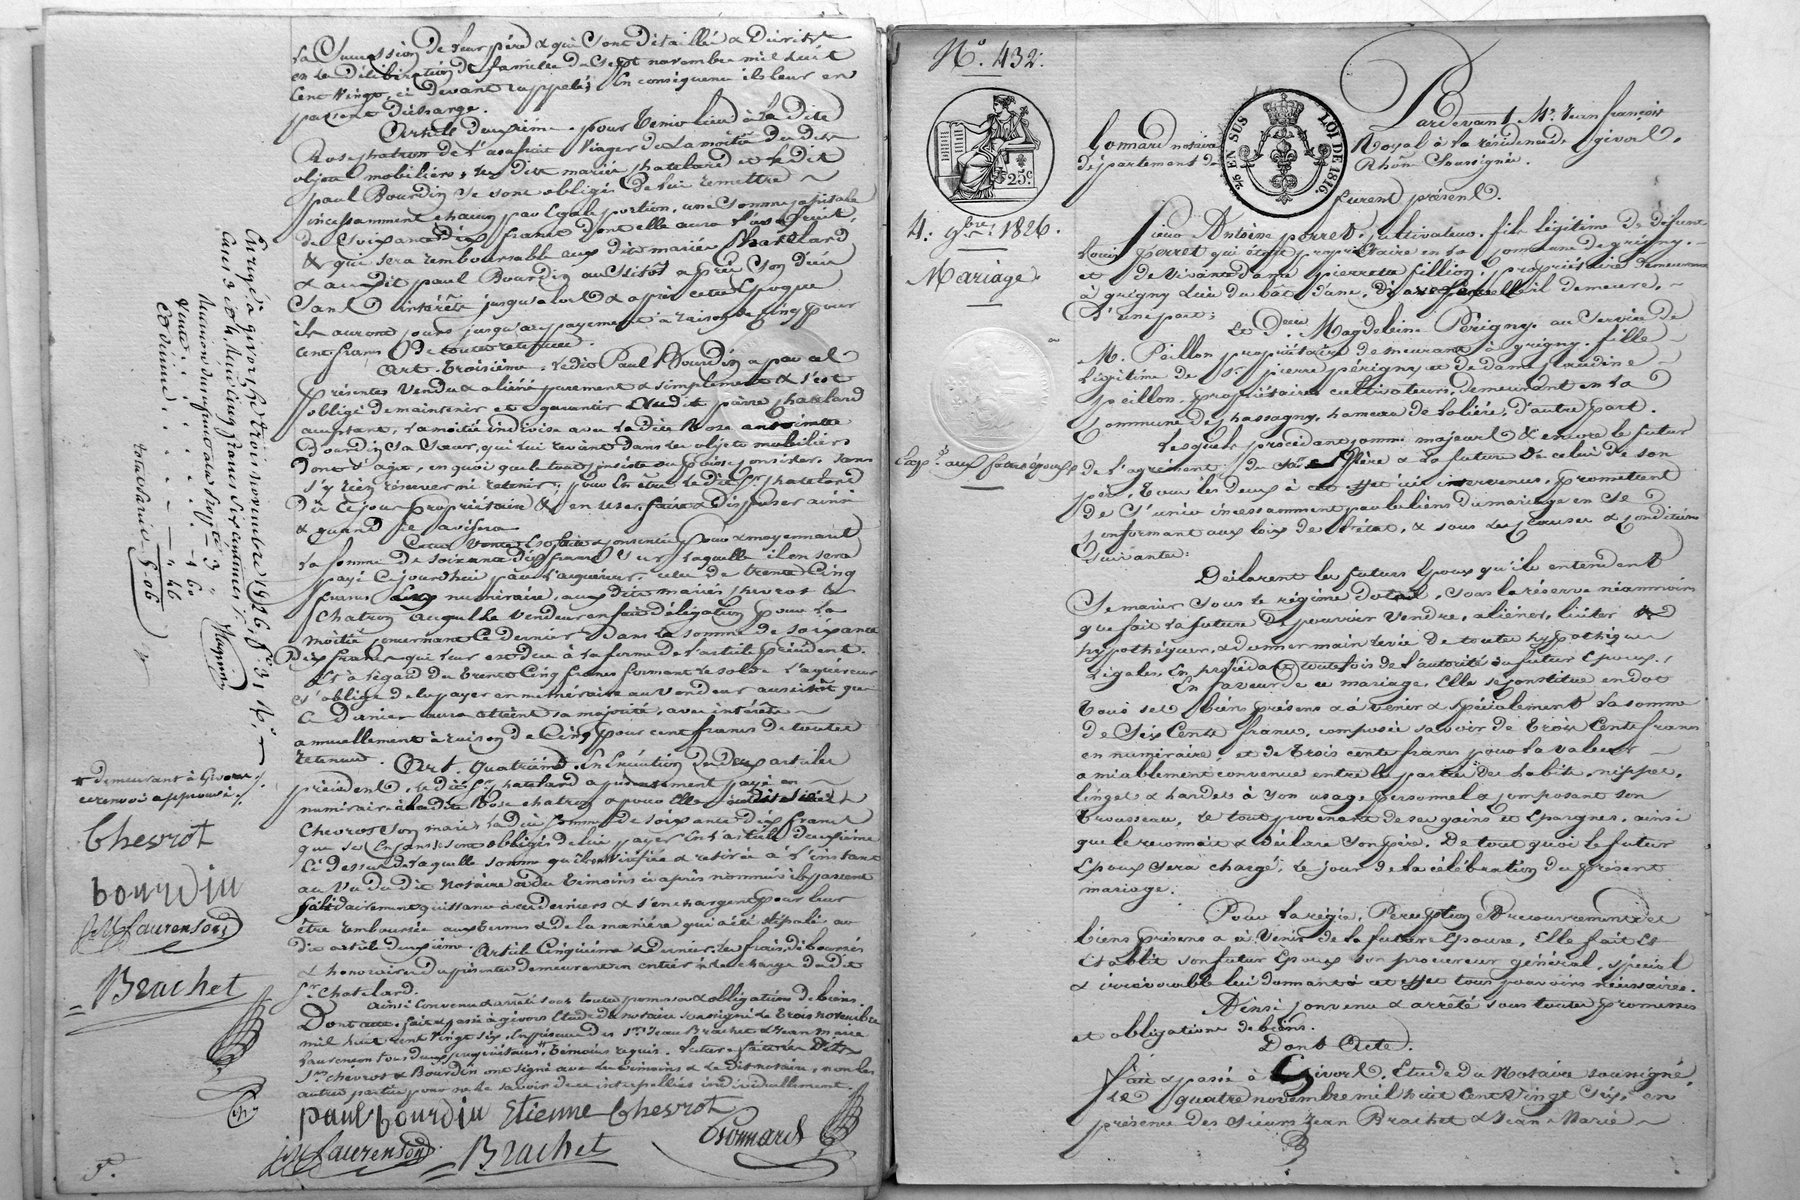 La Succession de leur père & qui sont détaillé & Décrits
en la Délibération de famille du sept novembre mil huit
Cent Vingt, ci devant rappelé; En conséquence ils leur en
passent Décharge.
Article deuxième. pour Tenir lieu à la Dite
Rose chatron de l'usufruit Viager de la moitié du dit
objets mobiliers, les dits mariés chatelard et le dit
paul Bourdin se sont obligés de lui remettre
incessamment chacun par Egale portion, une somme capitale
de soixante Dix francs dont elle aura l'usufruit,
& qui sera remboursable aux dits mariés Chatelard
& au dit paul Bourdin aussitôt après son Décès
Sans intérêts jusqu'alors & après cette Epoque
ils auront cours jusqu'au payement à raison de cinq pour
cent francs De toute retenue.
Art. Troisième. Le dit Paul Bourdin a par ces
présentes Vendu & aliéné purement & simplement & s'est
obligé de maintenir et garantir Audit pierre chatelard
acceptant, la moitié indivise avec la dite Rose antoinette
Bourdin sa sœur, qui lui revient dans les objets mobiliers
Dont s'agit, en quoi que le tout consiste ou puisse consister, sans
s'y rien réserver ni retenir; pour En être le dit Sr. chatelard
Dès ce jour propriétaire & en user, faire & disposer ainsi
& quand il avisera.
Cette Vente Est faite & consentie pour & moyennant
la somme de soixante dix francs sur laquelle il en sera
payé Ce jourd'hui par l'acquéreur, celle de trente Cinq
francs en numéraire, aux dits mariés chevrot &
Chatron auxquels le Vendeur en fait délégation pour la
moitié concernant ce dernier dans la somme de soixante
Dix francs qui leur est due à la forme de l'article précédent.
Et à l'égard du trente Cinq francs formant le solde l'acquéreur
s'oblige de les payer en numéraire au vendeur aussitôt que
Ce dernier aura atteint sa majorité, avec intérêts
annuellement à raison de Cinq pour cent francs de toute
retenue. Art. Quatrième. En Exécution des deux articles
précédents, le dit Sr. chatelard a présentement payé en
numéraire à la dite Rose chatron & pour Elle au dit Sieur
Chevrot son mari, la dite somme de soixante dix francs
que ses Enfans se sont obligés de lui payer En l'article deuxième
Ci dessus, de laquelle somme qu'ils ont vérifiée & retirée à l'instant
au Vu du dit Notaire & du témoins ci après nommés ils passent
solidairement quittance à ces derniers & s'en chargent pour leur
être remboursée aux termes & de la manière qui a été stipulé au
dit article deuxième. Article Cinquième & dernier. les frais, déboursés
& honoraires des présentes demeurent en entier à la charge du dit
Sr. Chatelard.
Ainsi convenu & arrêté sous toutes promesses & obligations de biens.
Dont acte, fait & passé à givors Etude du notaire soussigné le trois novembre
mil huit cent vingt six, En présence des Srs. Jean Brachet & Jean Marie
Laurenson tous deux propriétaires, témoins requis. Lecture faite
Srs. chevrot & Bourdin ont signé avec les témoins & le dit notaire, non les
autres parties pour ne le savoir de ce interpellées individuellement.
paul bourdin Etienne Chevrot
J. M. Laurenson Brachet Gonnard
Enregistré à givors le trois novembre 1826, f.° 31
demeurant à Givors
ce renvoi approuvé
Chevrot
bourdin
J. M. Laurenson
Brachet
N.° 432.
25.c
4. 9bre 1826.
Mariage
Exp.on aux futurs époux
2/5 EN SUS LOI DE 1816.
Pardevant Mr. Jean françois
Gonnard notaire Royal à la résidence de givors,
département du Rhône Soussigné.
furent présents.
Sieur Antoine perret, cultivateur, fils légitime de défunt
Louis perret qui était propriétaire en la Commune de grigny.
et de Vivante dame pierrette fillion, propriétaire demeurant
à grigny lieu du bâtd'ane, il demeure,
D'une part;
Et Dlle Magdeleine Périgny, au service de
M. Peillon propriétaire demeurant à grigny, fille
Légitime de Sr. pierre périgny et de dame claudine
peillon, propriétaires cultivateurs, demeurant en la
Commune de chassagny, hameau de Lalière, d'autre part.
Lesquels procédant comme majeurs & encore le futur
de l'agrément de sa mère & la future de celui de son
père, tous les deux à cet effet ici intervenus, promettent
de s'unir incessamment par les liens du mariage en se
conformant aux loix de l'état, & sous les clauses & conditions
suivantes:
Déclarent les futurs Epoux qu'ils entendent
Se marier sous le régime dotal, sous la réserve néanmoins
que fait la future de pouvoir vendre, aliéner, liciter &
hypothéquer, & donner main levée de toutes hypothèques
Légales, En procédant toutefois de l'autorité du futur Epoux.
En faveur de ce mariage, Elle se constitue en dot
tous ses biens présens & à venir & spécialement la somme
de Six Cents francs, composée savoir de trois Cents francs
en numéraire, et de trois cents francs pour la valeur
amiablement convenue entre les parties des habits, nippes,
linges & hardes à son usage personnel & composant son
trousseau, le tout provenant de ses gains et Epargnes, ainsi
que le reconnait & déclare son père. De tout quoi le futur
Epoux sera chargé, le jour de la célébration du présent
mariage.
Pour la régie, Perception & recouvrement des
biens présens & à Venir de la future épouse, Elle fait et
établit son futur Epoux son procureur général, spécial
& irrévocable lui donnant à cet effet tous pouvoirs nécessaires.
Ainsi convenu & arrêté sous toutes promesses
et obligations de biens.
Dont Acte.
fait & passé à Givors, Etude du Notaire soussigné,
Le quatre novembre mil huit Cent Vingt Six, en
présence des sieurs Jean Brachet & Jean Marie